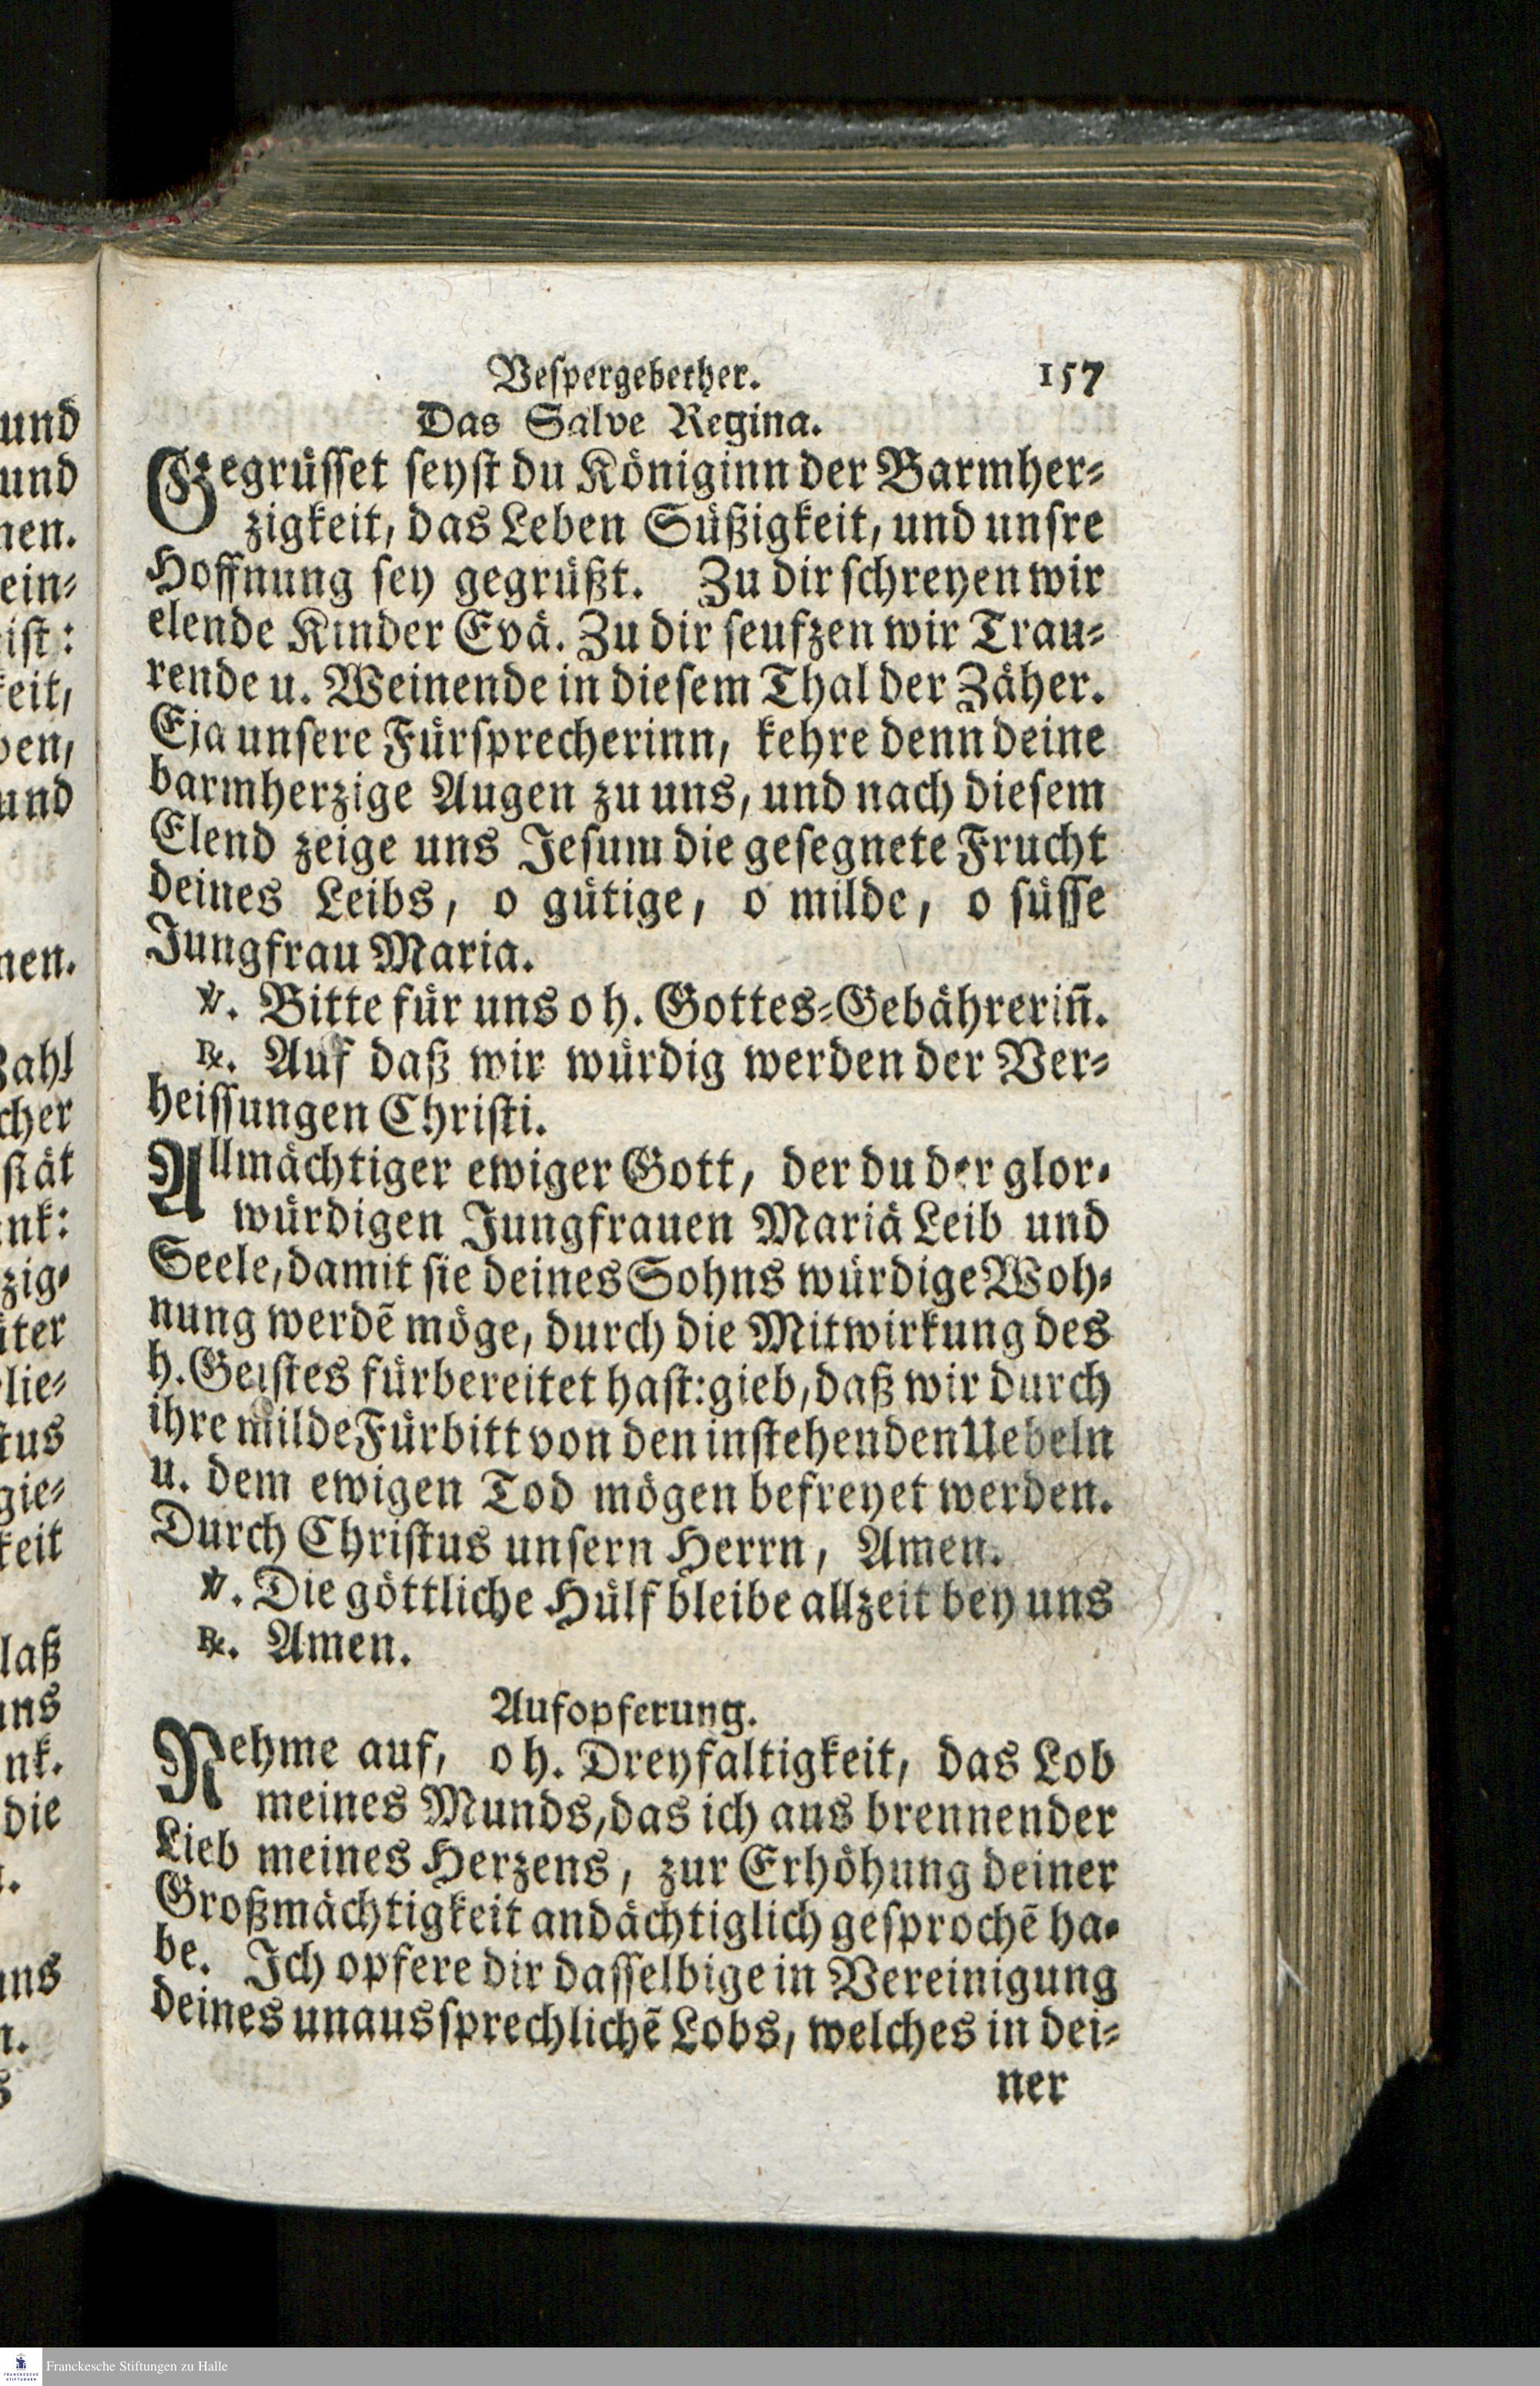 Veſpergebether. 157
Das Salve Regina.
Gegrüſſet ſeyſt du Königinn der Barmher-
zigkeit, das Leben Süßigkeit, und unſre
Hoffnung ſey gegrüßt. Zu dir ſchreyen wir
elende Kinder Evä. Zu dir ſeufzen wir Trau-
rende u. Weinende in dieſem Thal der Zäher.
Eja unſere Fürſprecherinn, kehre denn deine
barmherzige Augen zu uns, und nach dieſem
Elend zeige uns Jeſum die geſegnete Frucht
deines Leibs, o gütige, o milde, o ſüſſe
Jungfrau Maria.
℣. Bitte für uns o h. Gottes-Gebährerin̄.
℟. Auf daß wir würdig werden der Ver-
heiſſungen Chriſti.
Allmächtiger ewiger Gott, der du der glor-
würdigen Jungfrauen Mariä Leib und
Seele, damit ſie deines Sohns würdige Woh-
nung werdē möge, durch die Mitwirkung des
h. Geiſtes fürbereitet haſt: gieb, daß wir durch
ihre milde Fürbitt von den inſtehenden Uebeln
u. dem ewigen Tod mögen befreyet werden.
Durch Chriſtus unſern Herrn, Amen.
℣. Die göttliche Hülf bleibe allzeit bey uns
℟. Amen.
Aufopferung.
Nehme auf, o h. Dreyfaltigkeit, das Lob
meines Munds, das ich aus brennender
Lieb meines Herzens, zur Erhöhung deiner
Großmächtigkeit andächtiglich geſprochē ha-
be. Ich opfere dir daſſelbige in Vereinigung
deines unausſprechlichē Lobs, welches in dei-
ner
und
und
ein-
iſt:
und
cher
laß
die
Franckesche Stiftungen zu Halle